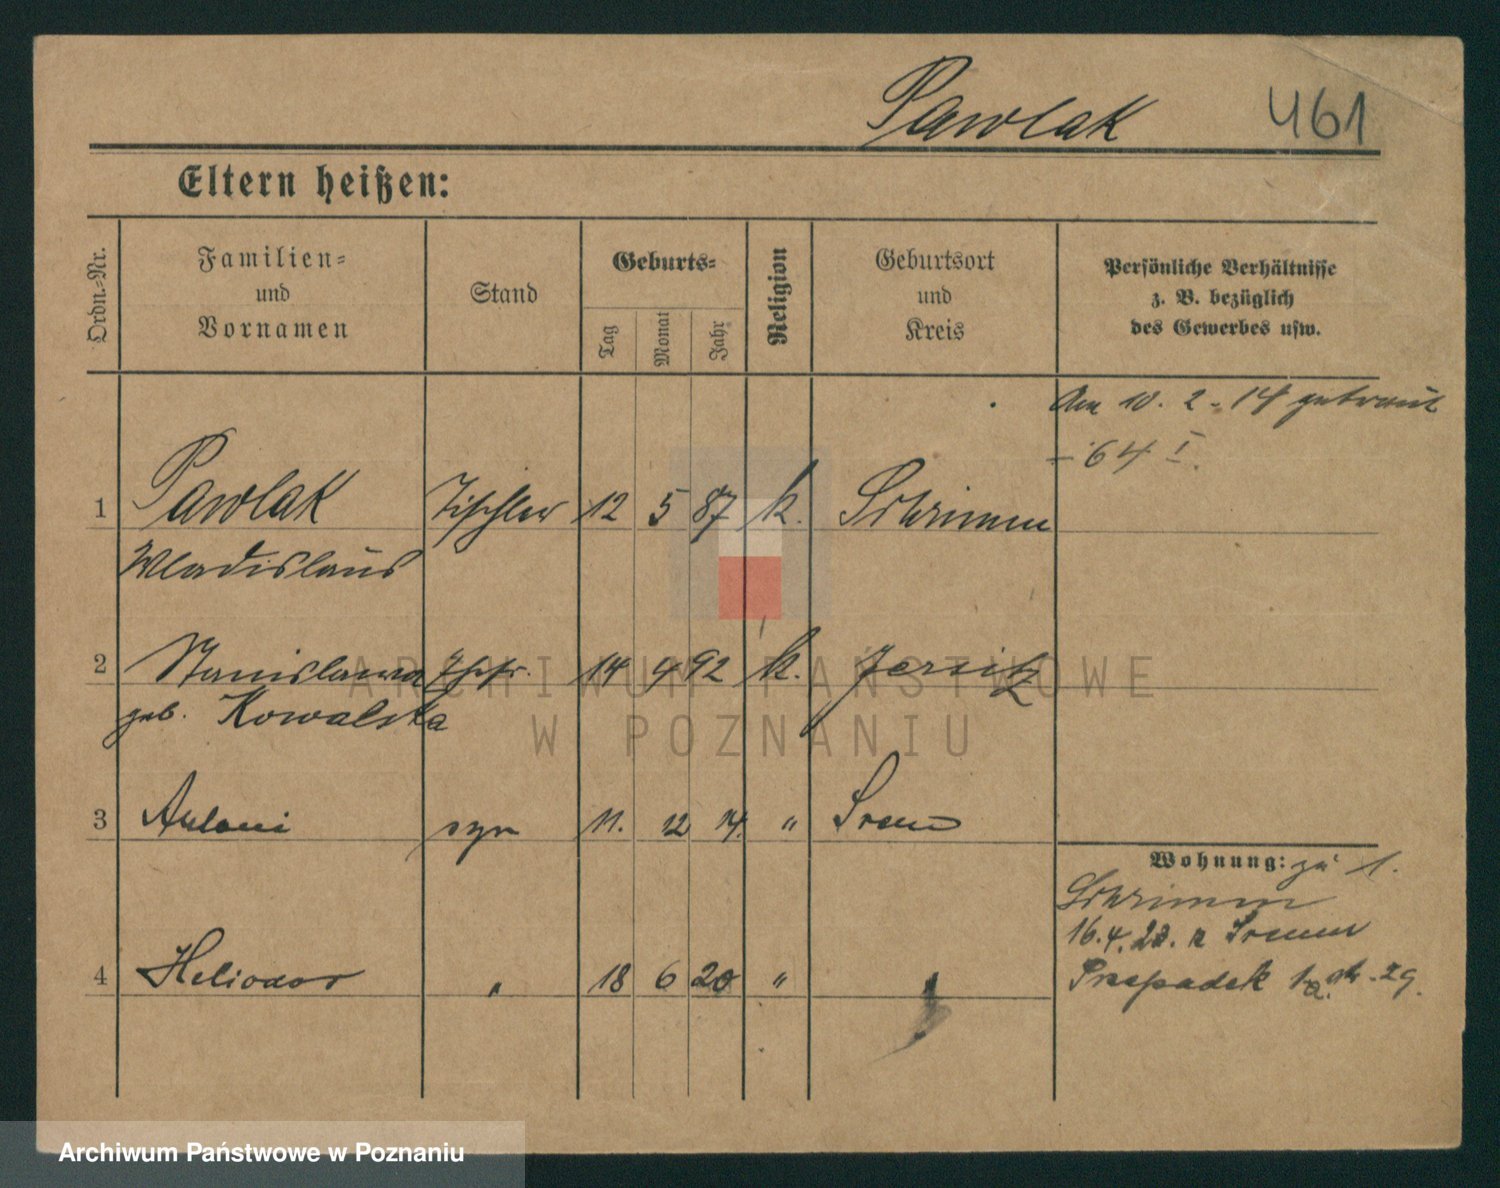 Pawlak 461
Eltern heißen:
Ordn.-Nr.
Familien-
und
Vornamen
Stand
Geburts-
Tag
Monat
Jahr
Religion
Geburtsort
und
Kreis
Persönliche Verhältnisse
z. B. bezüglich
des Gewerbes usw.
Am 10. 2. 14 getraut
64 I.
1 Pawlak Tischler 12 5 87 k. Schrimm
Wladislaus
2 Stanislawa Ehefr. 14 9 92 k. Jersitz
geb. Kowalska
3 Antoni syn 11. 12 14. " Srem
Wohnung: zu 1.
Schrimm
16.4.23. z Sremu
4 Heliodor " 18 6 20 " "
Przepadek
ARCHIWUM PAŃSTWOWE
W POZNANIU
Archiwum Państwowe w Poznaniu